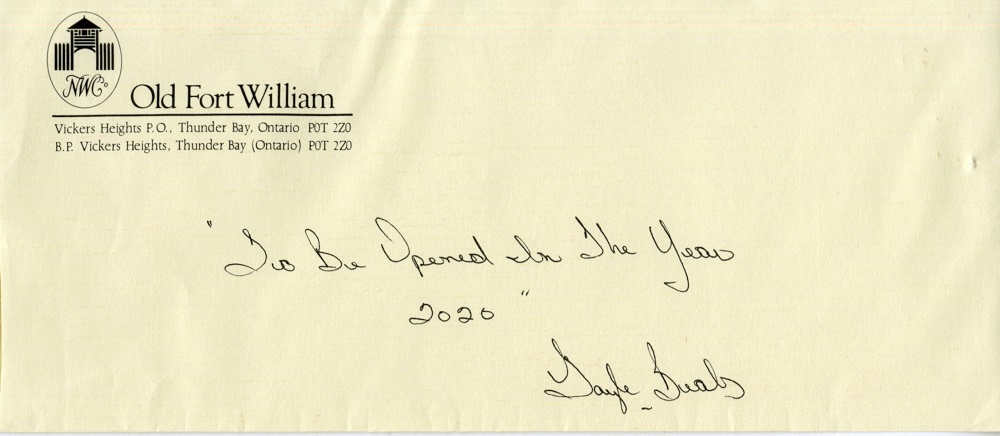 NWCo
Old Fort William
Vickers Heights P.O., Thunder Bay, Ontario P0T 2Z0
B.P. Vickers Heights, Thunder Bay (Ontario) P0T 2Z0
"To Be Opened In The Year
2020"
Gayle Buals